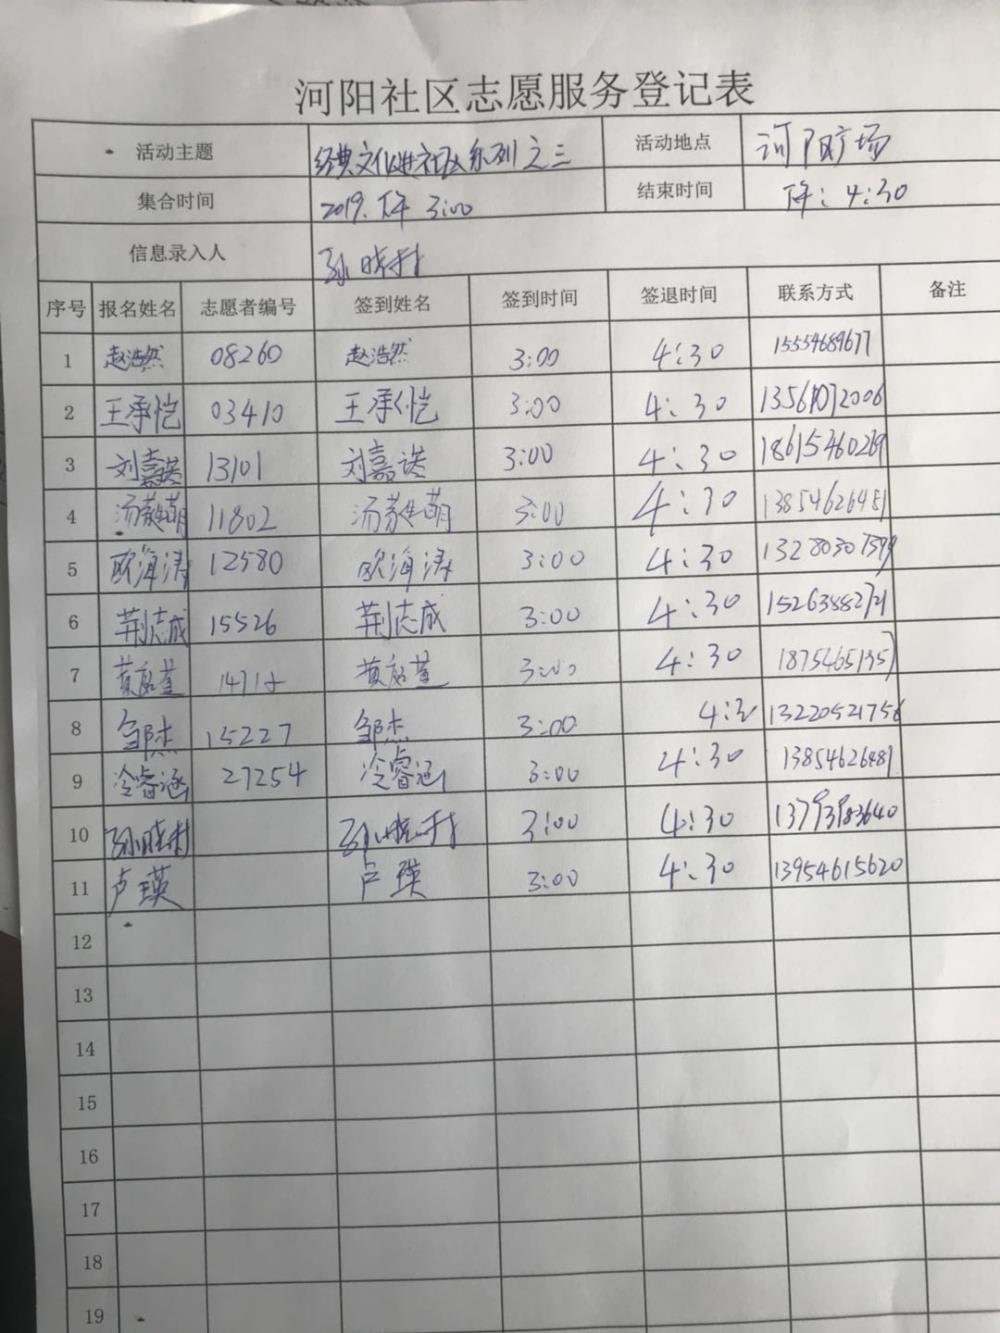 河阳社区志愿服务登记表
活动主题 经典文化进社区系列之三 活动地点 河阳广场
集合时间 2019.下午 3:00 结束时间 下午: 4:30
信息录入人 孙晓村
序号 报名姓名 志愿者编号 签到姓名 签到时间 签退时间 联系方式 备注
1 赵浩然 08260 赵浩然 3:00 4:30 15554689677
2 王承恺 03410 王承恺 3:00 4:30 13561072006
3 13101 3:00 4:30 18615460269
4 11802 3:00 4:30 13854626481
5 欧海涛 12580 欧海涛 3:00 4:30
6 荆志成 15526 荆志成 3:00 4:30
7 3:00 4:30 18754651357
8 邹杰 15227 邹杰 3:00 13220521756
9 冷睿涵 27254 冷睿涵 3:00 4:30 13854626481
10 孙晓村 孙晓村 3:00 4:30
11 卢瑛 卢瑛 3:00 4:30 13954615620
12
13
14
15
16
17
18
19